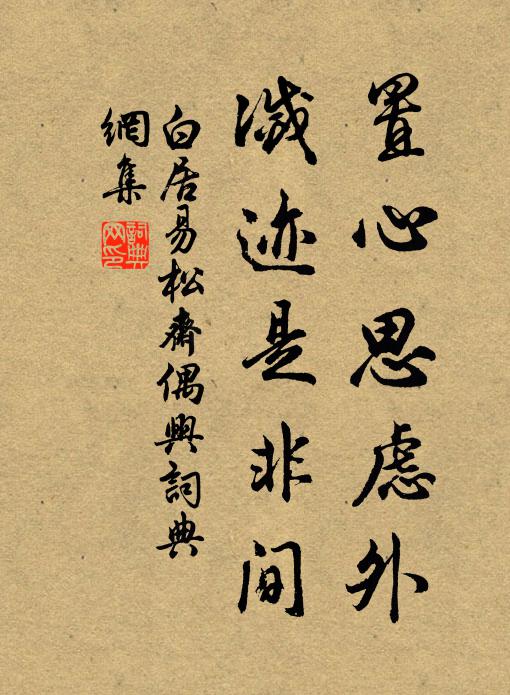 置心思虑外
滅迹是非间
白居易松齋偶興詞典
網集
詞典
网印